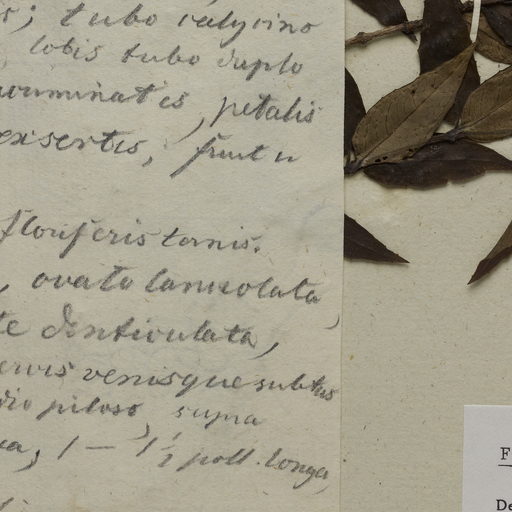 ; tubo calycino
lobis tubo duplo
acuminatis, petalis
exsertis, fructu
floriferis ternis.
, ovato lanceolata,
te denticulata,
nervis venisque subtus
piloso, supra
, 1 — 1 1/2 poll. longa,
F
De